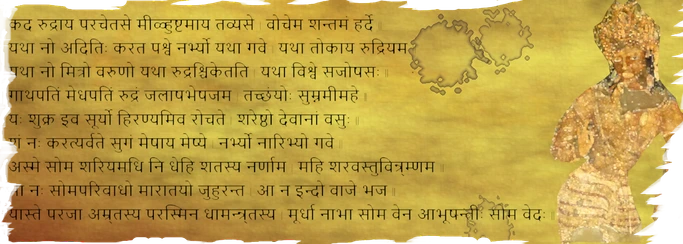 कद रुद्राय परचेतसे मीळ्हुष्टमाय तव्यसे । वोचेम शन्तमं हर्दे ॥
यथा नो अदितिः करत पश्वे नर्भ्यो यथा गवे । यथा तोकाय रुद्रियम
यथा नो मित्रो वरुणो यथा रुद्रश्चिकेतति । यथा विश्वे सजोषसः ॥
गाथपतिं मेधपतिं रुद्रं जलाषभेषजम । तच्छंयोः सुम्नमीमहे ॥
यः शुक्र इव सूर्यो हिरण्यमिव रोचते । शरेष्ठो देवानां वसुः ॥
नः करत्यर्वते सुगं मेषाय मेष्ये । नर्भ्यो नारिभ्यो गवे ॥
अस्मे सोम शरियमधि नि धेहि शतस्य नर्णाम । महि शरवस्तुविन्र्म्णम ॥
नः सोमपरिबाधो मारातयो जुहुरन्त । आ न इन्दो वाजे भज ॥
यास्ते परजा अम्र्तस्य परस्मिन धामन्न्र्तस्य । मूर्धा नाभा सोम वेन आभूषन्तीः सोम वेदः ॥